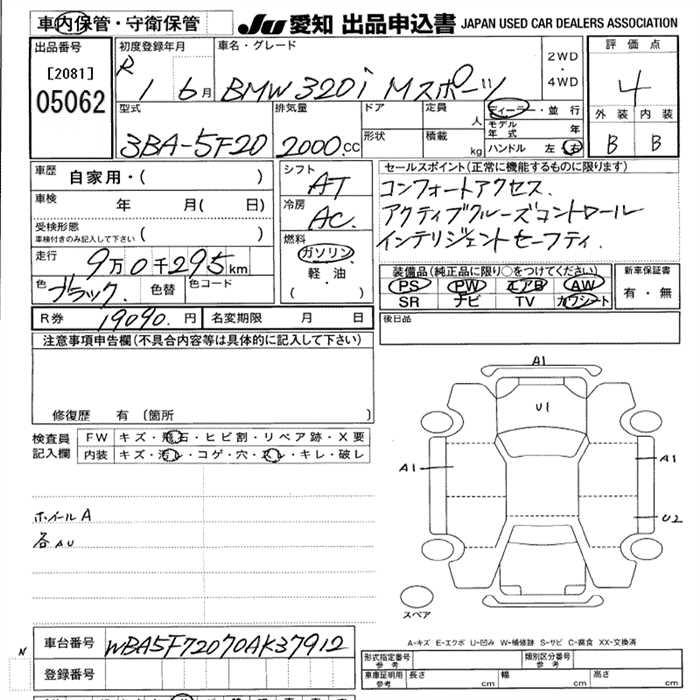 車内保管・守衛保管
JU 愛知 出品申込書 JAPAN USED CAR DEALERS ASSOCIATION
出品番号
[2081]
05062
初度登録年月
R 1 6月
車名・グレード
BMW 320i Mスポーツ
2WD
・
4WD
評価点
4
外装 内装
B B
型式
3BA-5F20
排気量
2000.cc
ドア
形状
定員
人
積載
kg
ディーラー・並行
モデル年式 年
ハンドル 左 右
車歴
自家用・( )
車検
年 月( 日)
受検形態
車検付きのみ記入して下さい ( )
走行
9万0千295km
色
ブラック.
色替
色コード
シフト
AT
冷房
AC.
燃料
ガソリン
・
軽油
( )
セールスポイント(正常に機能するものに限ります)
コンフォートアクセス.
アクティブクルーズコントロール
インテリジェントセーフティ.
装備品(純正品に限り○をつけてください)
PS PW エアB AW
SR ナビ TV カワシート
新車保証書
有・無
R券 19090.円
名変期限 月 日
後日品
注意事項申告欄(不具合内容等は具体的に記入して下さい)
修復歴 有 〔箇所 〕
検査員
記入欄
FW キズ・飛石・ヒビ割・リペア跡・X要
内装 キズ・汚レ・コゲ・穴・スレ・キレ・破レ
ホイールA
各AU
A1
U1
A1
A1
U2
スペア
A-キズ E-エクボ U-凹み W-補修跡 S-サビ C-腐食 XX-交換済
N
車台番号 WBA5F72070AK37912
登録番号
形式指定番号
参考
類別区分番号
参考
車庫証明用
参考
長さ cm 幅 cm 高さ cm